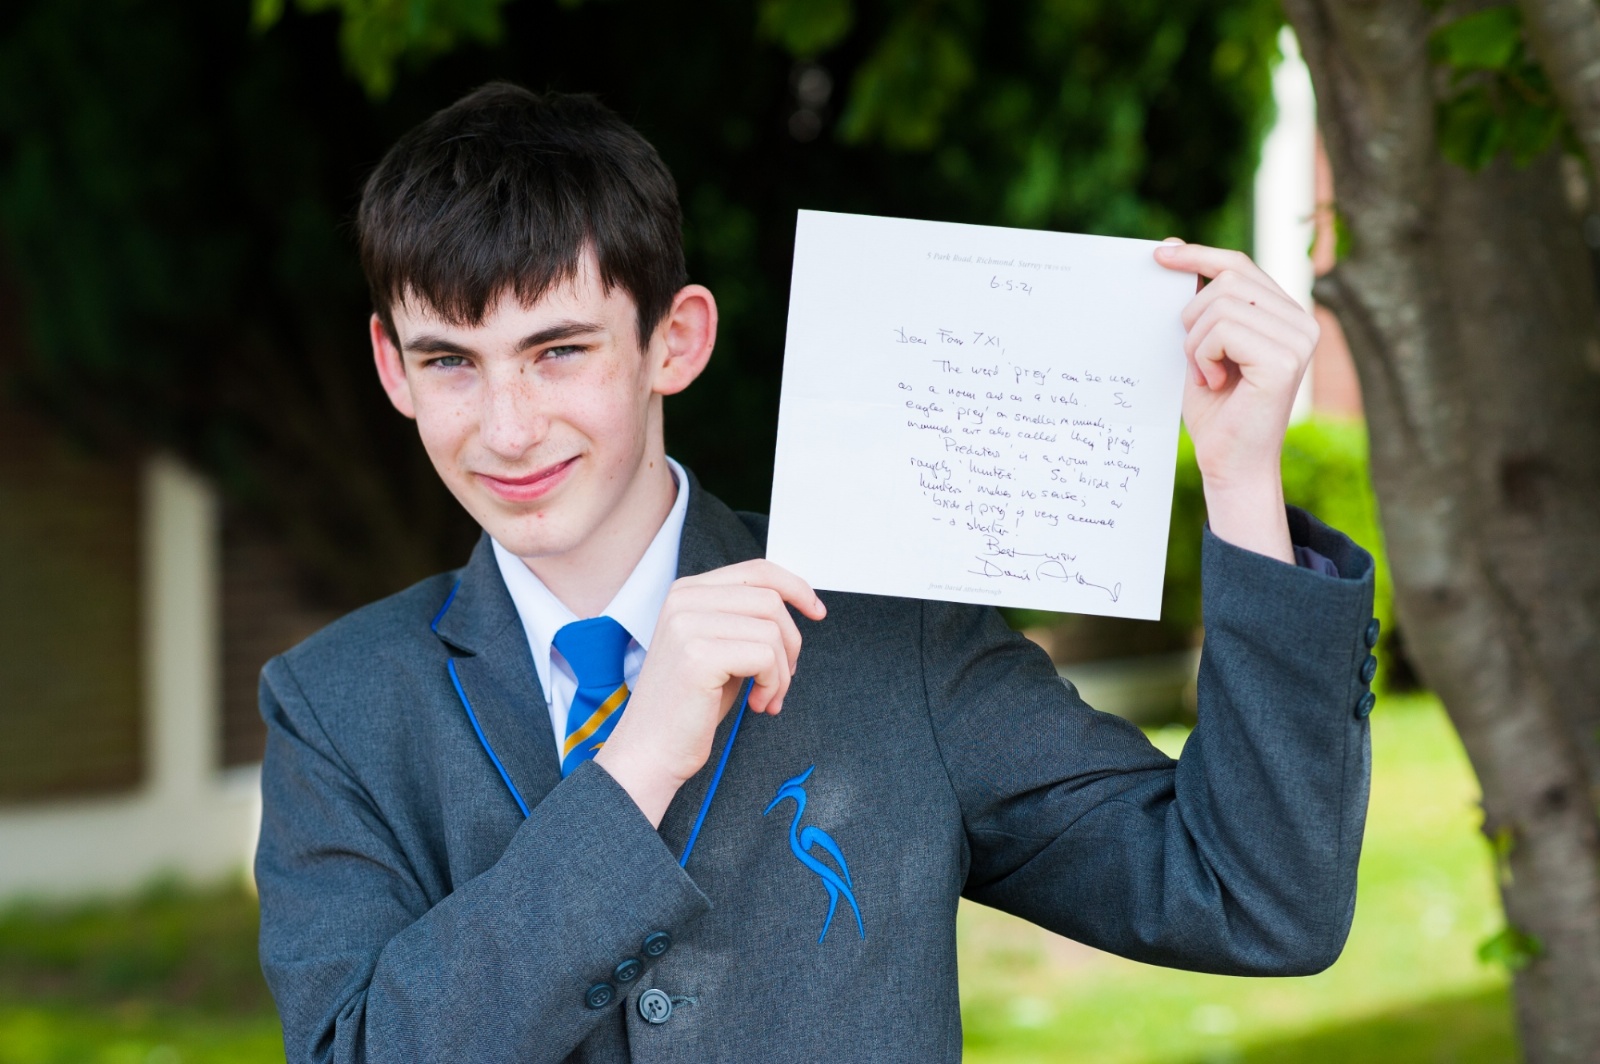 5 Park Road, Richmond, Surrey
6.5.21
Dear Form 7XI,
The word 'prey' can be used
as a noun and as a verb. So
eagles 'prey' on smaller mammals; &
mammals are also called their 'prey'.
'Predators' is a noun meaning
roughly 'hunters'. So 'birds of
hunters' makes no sense; as
'birds of prey' is very accurate
– & shorter!
Best wishes
David Attenborough
from David Attenborough